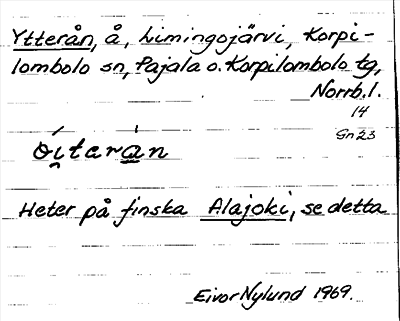 Ytterån, å, Limingojärvi, Korpi-
lombolo sn, Pajala o. Korpilombolo tg,
Norrb. l.
14
Gn 23
òi̯terȧn
Heter på finska Alajoki, se detta
Eivor Nylund 1969.